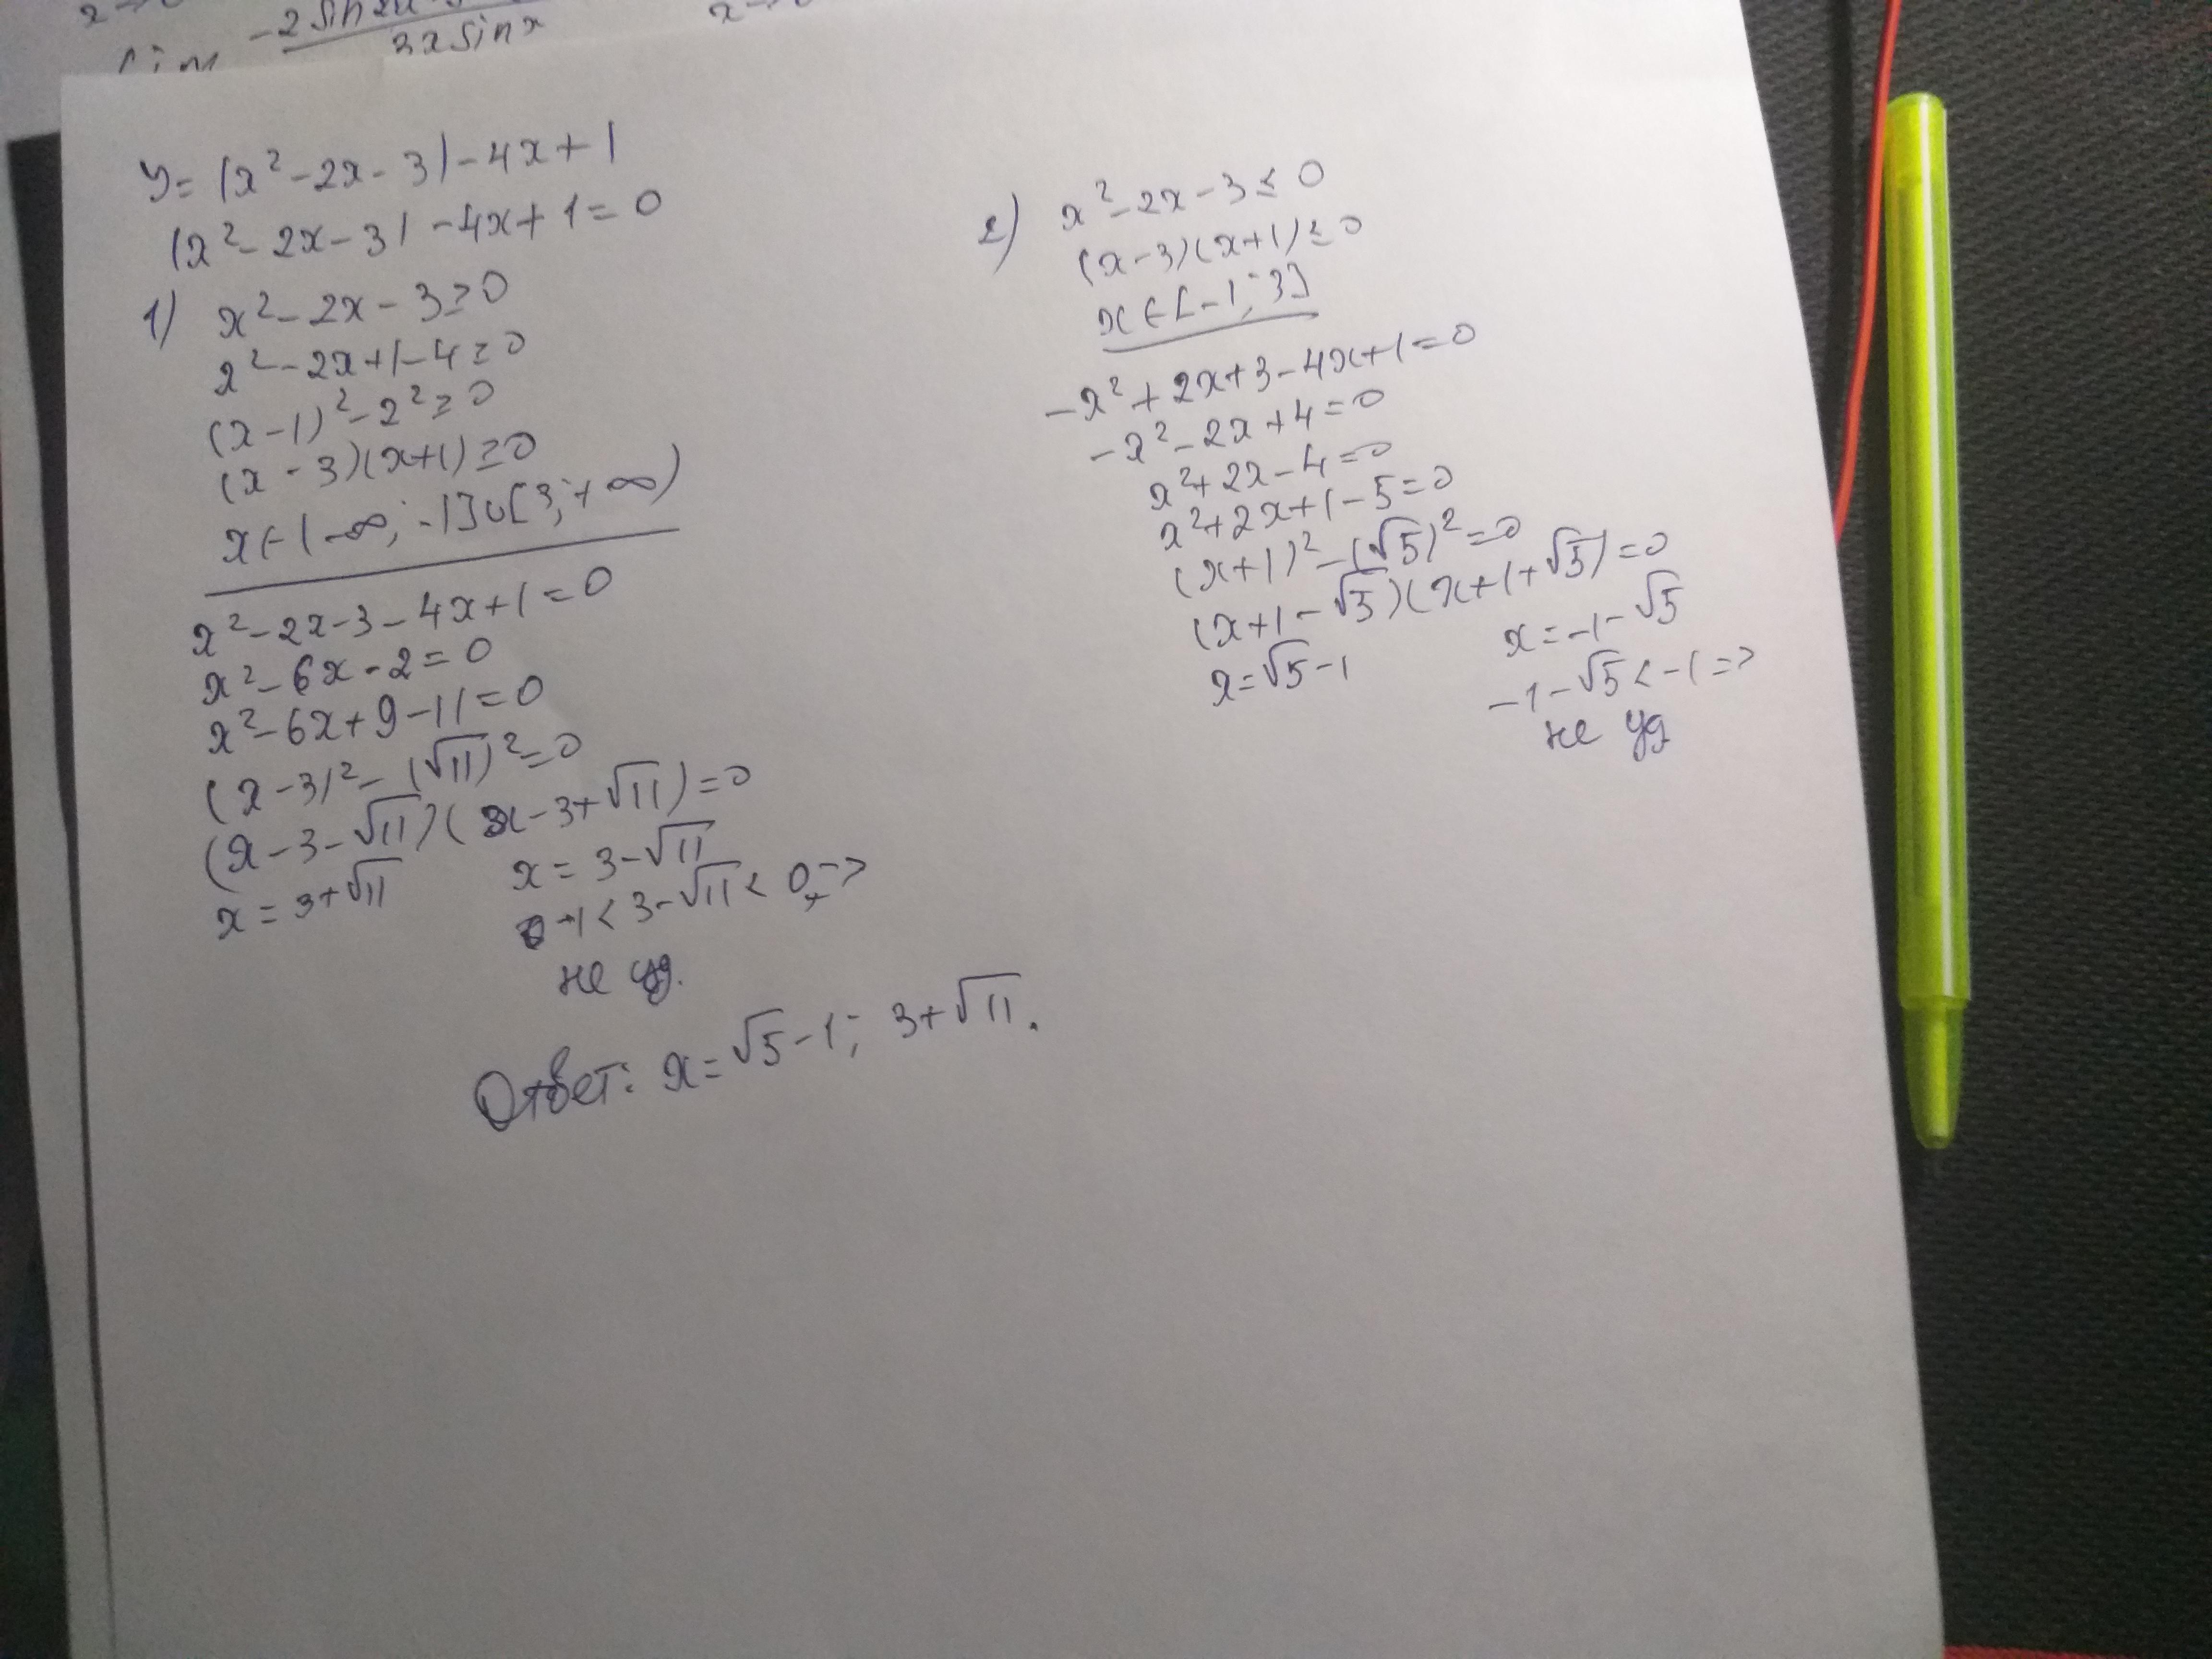 lim -2sin2x / 3x sin x
y = |x² - 2x - 3| - 4x + 1
|x² - 2x - 3| - 4x + 1 = 0
1) x² - 2x - 3 ≥ 0
x² - 2x + 1 - 4 ≥ 0
(x - 1)² - 2² ≥ 0
(x - 3)(x + 1) ≥ 0
x ∈ (-∞; -1] ∪ [3; +∞)
x² - 2x - 3 - 4x + 1 = 0
x² - 6x - 2 = 0
x² - 6x + 9 - 11 = 0
(x - 3)² - (√11)² = 0
(x - 3 - √11)(x - 3 + √11) = 0
x = 3 + √11 x = 3 - √11
-1 < 3 - √11 < 0 =>
не уд.
2) x² - 2x - 3 ≤ 0
(x - 3)(x + 1) ≤ 0
x ∈ [-1; 3]
-x² + 2x + 3 - 4x + 1 = 0
-x² - 2x + 4 = 0
x² + 2x - 4 = 0
x² + 2x + 1 - 5 = 0
(x + 1)² - (√5)² = 0
(x + 1 - √5)(x + 1 + √5) = 0
x = √5 - 1 x = -1 - √5
-1 - √5 < -1 =>
не уд
Ответ: x = √5 - 1; 3 + √11.